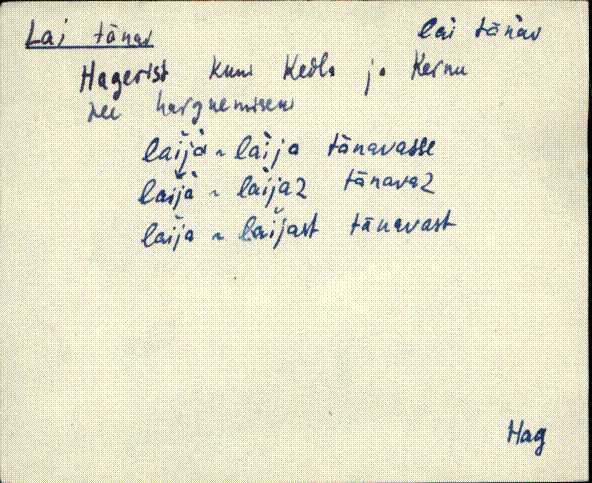 Lai tänav lai tänav
Hagerist kuni Keila ja Kernu
tee hargnemiseni
laijà ~ laìja tänavasse
laijà ~ laìjaz tänavaz
laìja ~ laìjast tänavast
Hag